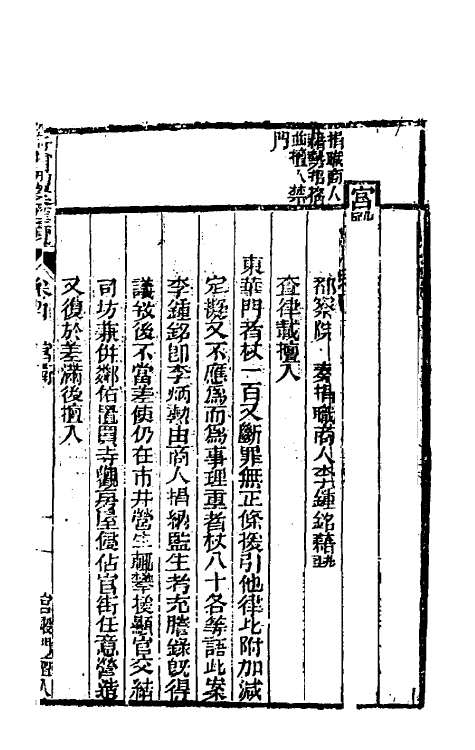 捐職商人
藉勢招搖
並擅入禁
門
宮
都察院 奏捐職商人李鍾銘藉
查律載擅入
東華門者杖一百又斷罪無正條援引他律比附加減
定擬又不應爲而爲事理重者杖八十各等語此案
李鍾銘卽李炳勳由商人捐納監生考充謄錄旣得
議敘後不當差使仍在市井營生輒攀援顯官交結
司坊兼併鄰佑置買寺觀房屋侵佔官街任意營造
又復於差滿後擅入
卷四